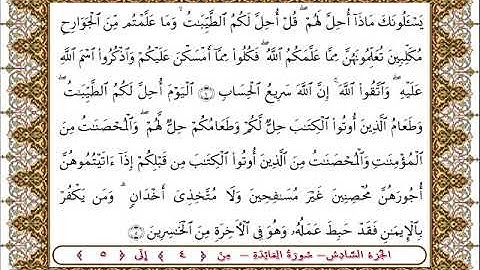 يَسْـَٔلُونَكَ مَاذَآ أُحِلَّ لَهُمْ ۖ قُلْ أُحِلَّ لَكُمُ ٱلطَّيِّبَـٰتُ ۙ وَمَا عَلَّمْتُم مِّنَ ٱلْجَوَارِحِ
مُكَلِّبِينَ تُعَلِّمُونَهُنَّ مِمَّا عَلَّمَكُمُ ٱللَّهُ ۖ فَكُلُوا۟ مِمَّآ أَمْسَكْنَ عَلَيْكُمْ وَٱذْكُرُوا۟ ٱسْمَ ٱللَّهِ
عَلَيْهِ ۖ وَٱتَّقُوا۟ ٱللَّهَ ۚ إِنَّ ٱللَّهَ سَرِيعُ ٱلْحِسَابِ ﴿٤﴾ ٱلْيَوْمَ أُحِلَّ لَكُمُ ٱلطَّيِّبَـٰتُ ۖ
وَطَعَامُ ٱلَّذِينَ أُوتُوا۟ ٱلْكِتَـٰبَ حِلٌّ لَّكُمْ وَطَعَامُكُمْ حِلٌّ لَّهُمْ ۖ وَٱلْمُحْصَنَـٰتُ مِنَ
ٱلْمُؤْمِنَـٰتِ وَٱلْمُحْصَنَـٰتُ مِنَ ٱلَّذِينَ أُوتُوا۟ ٱلْكِتَـٰبَ مِن قَبْلِكُمْ إِذَآ ءَاتَيْتُمُوهُنَّ
أُجُورَهُنَّ مُحْصِنِينَ غَيْرَ مُسَـٰفِحِينَ وَلَا مُتَّخِذِىٓ أَخْدَانٍ ۗ وَمَن يَكْفُرْ
بِٱلْإِيمَـٰنِ فَقَدْ حَبِطَ عَمَلُهُۥ وَهُوَ فِى ٱلْـَٔاخِرَةِ مِنَ ٱلْخَـٰسِرِينَ ﴿٥﴾
الجزء السادس – سورة المائدة – من ﴿ ٤ ﴾ إلى ﴿ ٥ ﴾